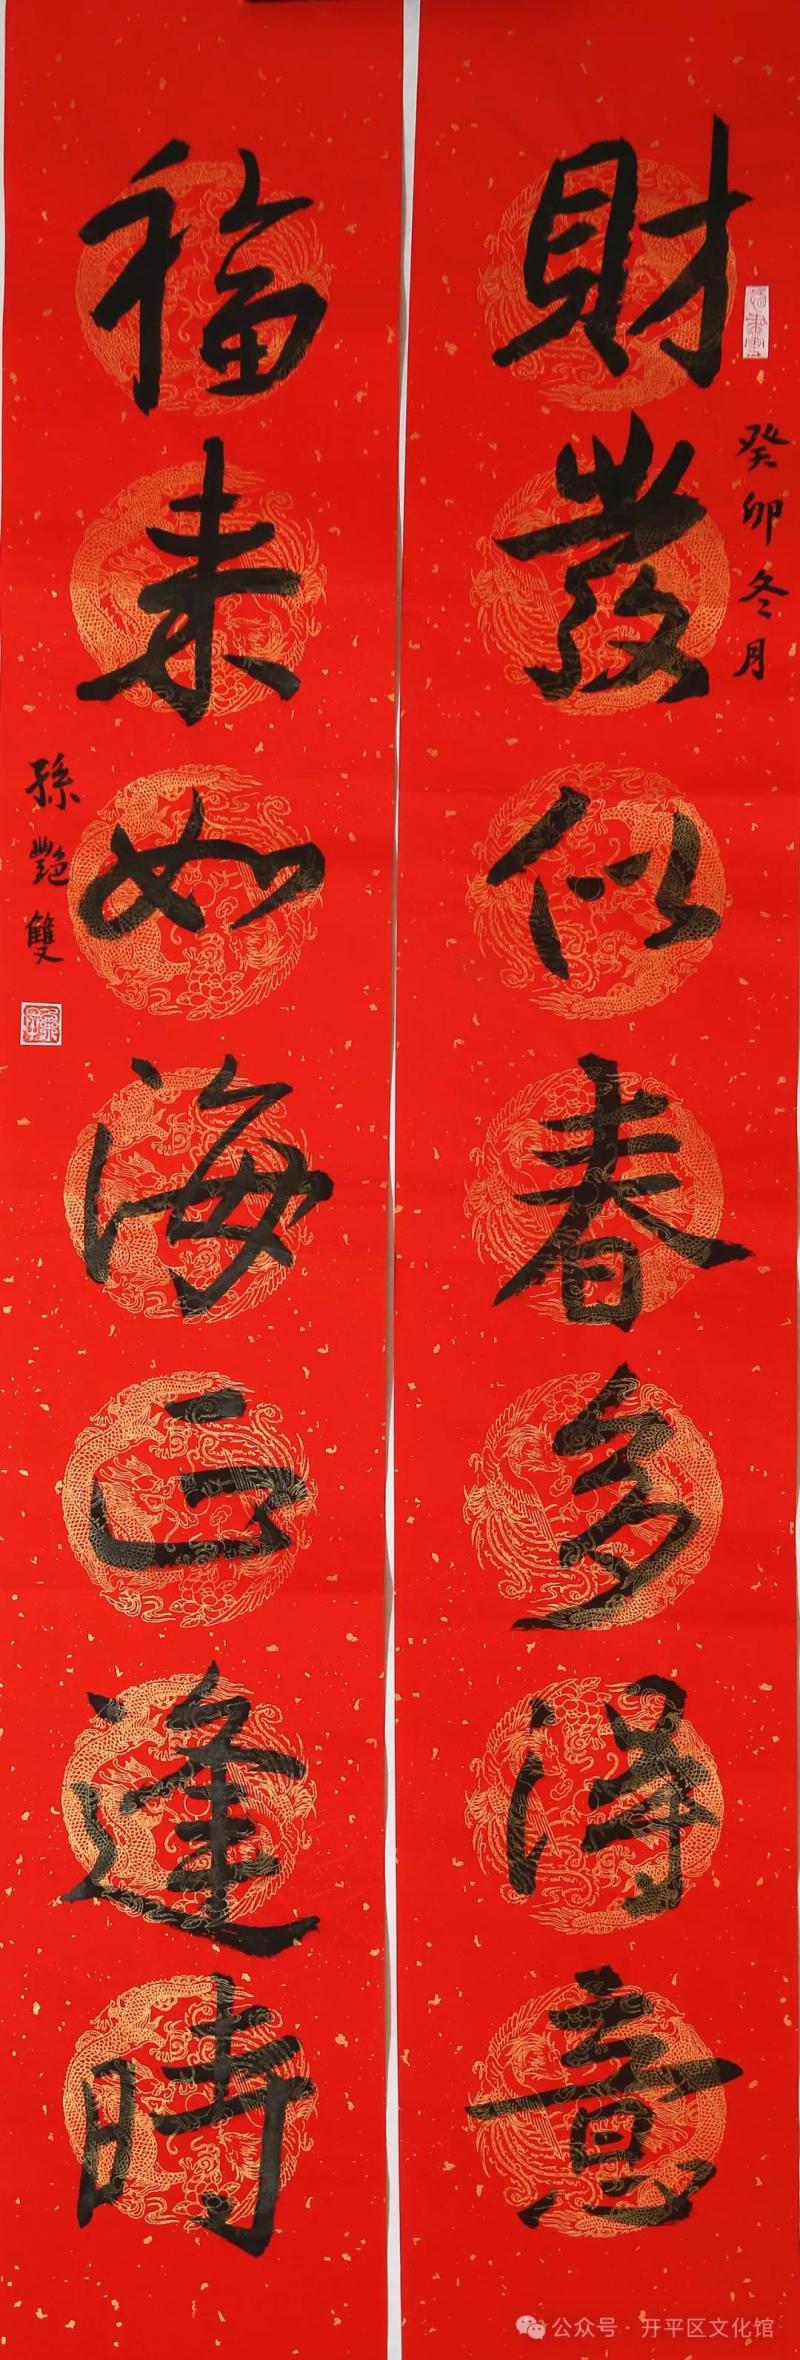 財發似春多得意
癸卯冬月
福来如海正逢時
孫艷雙
公众号·开平区文化馆